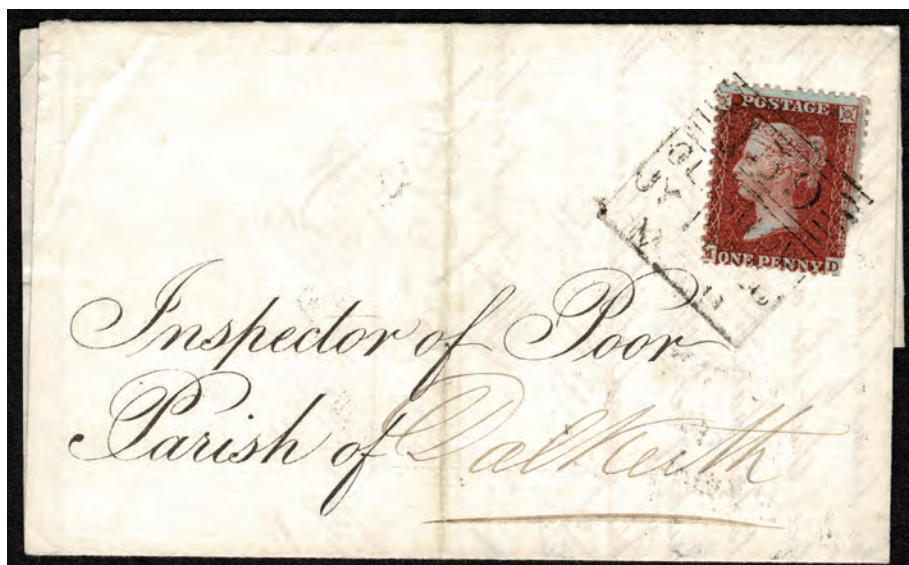 POSTAGE
ONE PENNY D
Inspector of Poor
Parish of Dalkeith